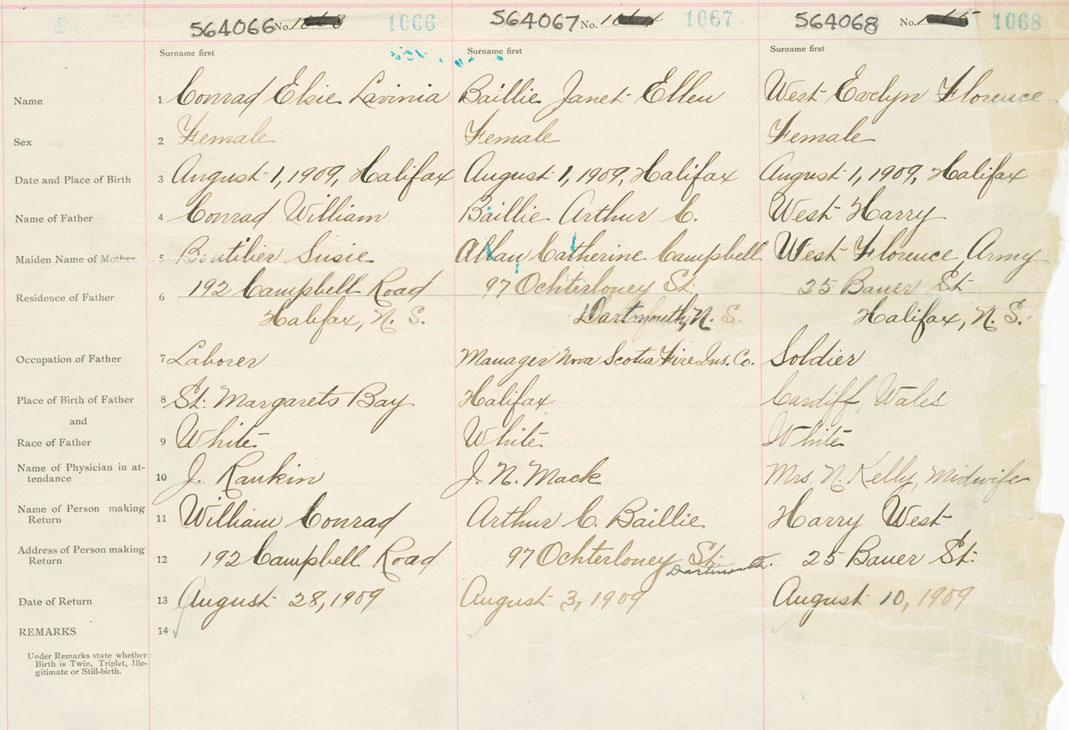 564066 No. 1066 564067 No. 1067 564068 No. 1068
Surname first Surname first Surname first
Name 1 Conrad Elsie Lavinia Baillie Janet Ellen West Evelyn Florence
Sex 2 Female Female Female
Date and Place of Birth 3 August 1, 1909, Halifax August 1, 1909, Halifax August 1, 1909, Halifax
Name of Father 4 Conrad William Baillie Arthur C. West Harry
Maiden Name of Mother 5 Boutilier Susie Allan Catherine Campbell West Florence Army
Residence of Father 6 192 Campbell Road 97 Ochterloney St. 25 Bauer St.
Halifax, N. S. Dartmouth, N. S. Halifax, N. S.
Occupation of Father 7 Laborer Manager Nova Scotia Fire Ins. Co. Soldier
Place of Birth of Father 8 St. Margarets Bay Halifax Cardiff, Wales
and
Race of Father 9 White White White
Name of Physician in at-
tendance 10 J. Rankin J. N. Mack Mrs. N. Kelly, Midwife
Name of Person making
Return 11 William Conrad Arthur C. Baillie Harry West
Address of Person making
Return 12 192 Campbell Road 97 Ochterloney St. Dartmouth. 25 Bauer St.
Date of Return 13 August 28, 1909 August 3, 1909 August 10, 1909
REMARKS 14
Under Remarks state whether
Birth is Twin, Triplet, Ille-
gitimate or Still-birth.